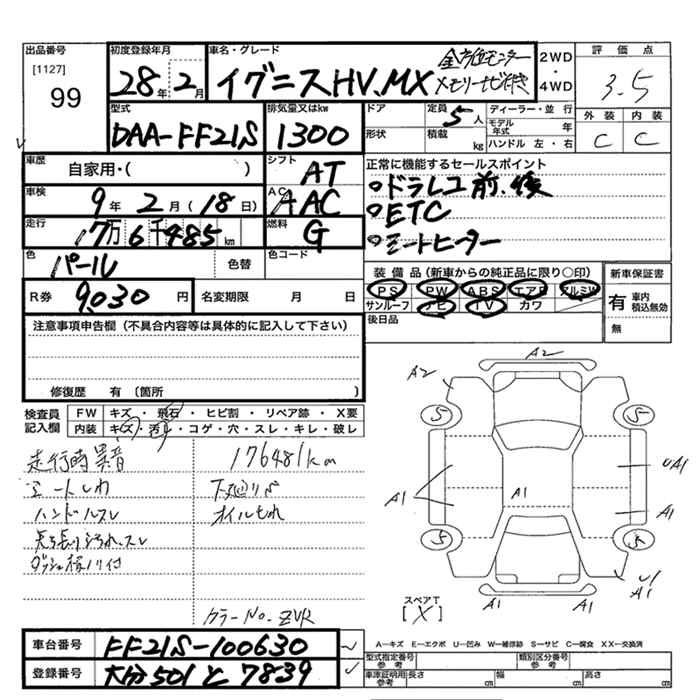 出品番号 [1127] 99
初度登録年月 28年 2月
車名・グレード イグニスHV.MX 全方位モニター メモリーナビ付き
2WD・4WD
評価点 3.5
型式 DAA-FF21S
排気量又はkw 1300
ドア 形状
定員 5人 積載 kg
ディーラー・並行
モデル年式 年
ハンドル 左・右
外装 C 内装 C
車歴 自家用・( )
シフト AT
正常に機能するセールスポイント
・ドラレコ前.後
・ETC
・シートヒーター
車検 9年 2月 (18日)
AC AAC
走行 17万6千485km
燃料 G
色 パール 色替 色コード
装備品(新車からの純正品に限り○印)
PS PW ABS エアB アルミW
サンルーフ ナビ TV カワ
後日品
新車保証書
有 車内積込無効
無
R券 9,030円
名変期限 月 日
注意事項申告欄(不具合内容等は具体的に記入して下さい)
修復歴 有 〔箇所 〕
検査員記入欄
FW キズ・飛石・ヒビ割・リペア跡・X要
内装 キズ・汚れ・コゲ・穴・スレ・キレ・破レ
走行時異音 176481km
シートしわ 下廻りサビ
ハンドルスレ オイルもれ
天張り汚れ.スレ
カラーNo. ZVR
A2
A2
S S
A1 A1 UA1
A1
S
A1
A1 A1
スペアT
[X]
A—キズ E—エクボ U—凹み W—補修跡 S—サビ C—腐食 XX—交換済
車台番号 FF21S-100630
登録番号 大分501と7839
型式指定番号 参考 類別区分番号 参考
車庫証明用 参考 長さ cm 幅 cm 高さ cm